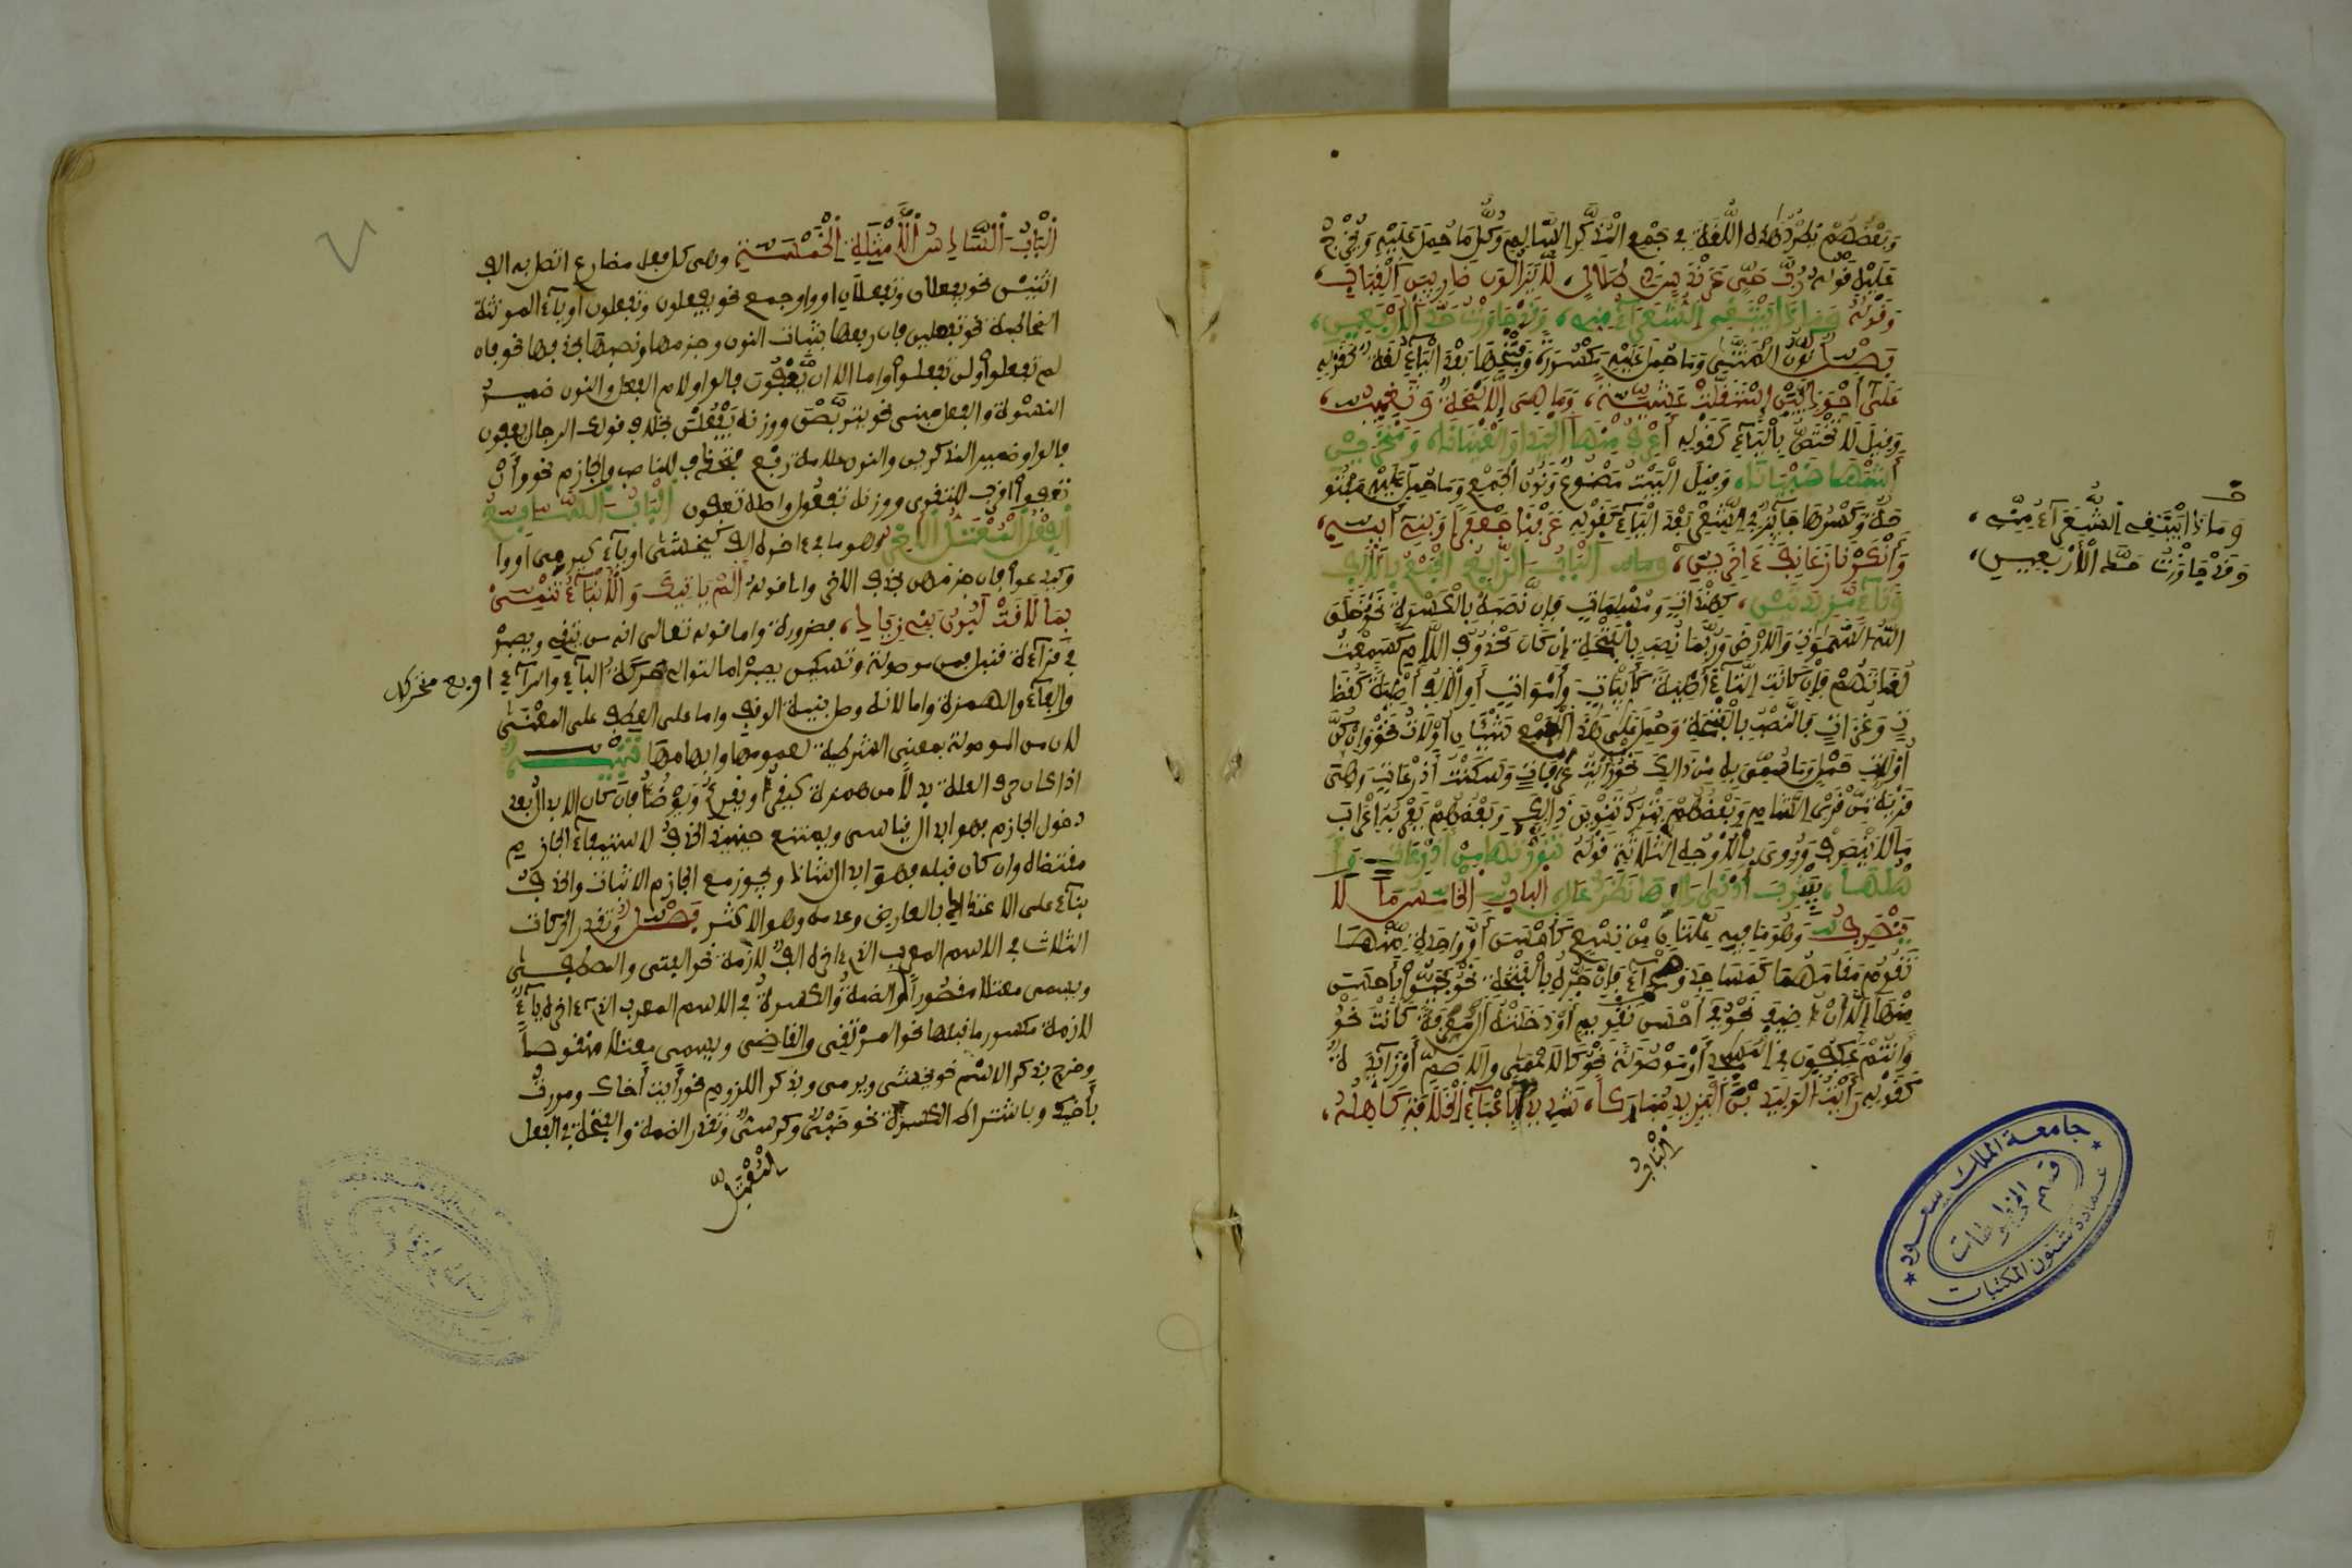 وَبَعْضُهُمْ يَطْرُدُ هٰذِهِ اللُّغَةَ فِي جَمْعِ الْمُذَكَّرِ السَّالِمِ وَكُلِّ مَا حُمِلَ عَلَيْهِ وَيُخَرِّجُ
عَلَيْهَا قَوْلَهُ رُبَّ حَيٍّ عَرَنْدَسٍ ذِي طَلَالٍ، لَا يَزَالُونَ ضَارِبِينَ الْقِبَابِ،
وَقَوْلَهُ وَمَاذَا يَبْتَغِي الشُّعَرَاءُ مِنِّي، وَقَدْ جَاوَزْتُ حَدَّ الْأَرْبَعِينِ،
فَصْلٌ نُونُ الْمُثَنَّى وَمَا حُمِلَ عَلَيْهِ مَكْسُورَةٌ وَفَتْحُهَا بَعْدَ الْيَاءِ لُغَةٌ كَقَوْلِهِ
عَلَى أَحْوَذِيَّيْنَ اسْتَقَلَّتْ عَشِيَّةً، وَمَا هِيَ إِلَّا لَمْحَةٌ وَتَغِيبُ،
وَقِيلَ لَا تَخْتَصُّ بِالْيَاءِ كَقَوْلِهِ أَعْرِفُ مِنْهَا الْجِيدَ وَالْعَيْنَانَا، وَمَنْخِرَيْنِ
أَشْبَهَا ظَبْيَانَا، وَقِيلَ الْبَيْتُ مَصْنُوعٌ وَنُونُ الْجَمْعِ وَمَا حُمِلَ عَلَيْهِ مَفْتُو
حَةٌ وَكَسْرُهَا جَائِزٌ فِي الشِّعْرِ بَعْدَ الْيَاءِ كَقَوْلِهِ عَرَفْنَا جَعْفَرًا وَبَنِي أَبِيهِ،
وَأَنْكَرْنَا زَعَانِفَ ءَاخَرِينِ، الْبَابُ الرَّابِعُ الْجَمْعُ بِأَلِفٍ
وَتَاءٍ مَزِيدَتَيْنِ، كَهِنْدَاتٍ وَمُسْلِمَاتٍ فَإِنَّ نَصْبَهُ بِالْكَسْرَةِ نَحْوُ خَلَقَ
اللّٰهُ السَّمٰوٰتِ وَالْأَرْضَ وَرُبَّمَا نُصِبَ بِالْفَتْحَةِ إِنْ كَانَ مَحْذُوفَ اللَّامِ كَسَمِعْتُ
لُغَاتَهُمْ فَإِنْ كَانَتِ التَّاءُ أَصْلِيَّةً كَأَبْيَاتٍ وَأَمْوَاتٍ أَوِ الْأَلِفُ أَصْلِيَّةً كَقُضَا
ةٍ وَغُزَاةٍ فَالنَّصْبُ بِالْفَتْحَةِ وَحُمِلَ عَلَى هٰذَا الْجَمْعِ شَيْئَانِ أُوْلَاتُ نَحْوُ وَإِنْ كُنَّ
أُوْلَاتِ حَمْلٍ وَمَا سُمِّيَ بِهِ مِنْ ذَالِكَ نَحْوُ رَأَيْتُ عَرَفَاتٍ وَسَكَنْتُ أَذْرِعَاتٍ وَهِيَ
قَرْيَةٌ مِنْ قُرَى الشَّامِ وَبَعْضُهُمْ يَتْرُكُ تَنْوِينَ ذَالِكَ وَبَعْضُهُمْ يُعْرِبُهُ إِعْرَابَ
مَا لَا يَنْصَرِفُ وَرُوِيَ بِالْأَوْجُهِ الثَّلَاثَةِ قَوْلُهُ تَنَوَّرْتُهَا مِنْ أَذْرِعَاتٍ وَأَ
هْلُهَا، بِيَثْرِبَ أَدْنَى دَارِهَا نَظَرٌ عَالِي، الباب الخامس مَا لَا
يَنْصَرِفُ وَهُوَ مَا فِيهِ عِلَّتَانِ مِنْ تِسْعٍ كَأَحْسَنَ أَوْ وَاحِدَةٌ مِنْهَا
تَقُومُ مَقَامَهُمَا كَمَسَاجِدَ وَصَحْرَاءَ فَإِنَّ جَرَّهُ بِالْفَتْحَةِ نَحْوُ فَحَيُّوا بِأَحْسَنَ
مِنْهَا إِلَّا إِنْ أُضِيفَ نَحْوُ فِي أَحْسَنِ تَقْوِيمٍ أَوْ دَخَلَتْهُ أَلْ مُعَرِّفَةً كَانَتْ نَحْوُ
وَأَنْتُمْ عَاكِفُونَ فِي الْمَسَاجِدِ أَوْ مَوْصُولَةً نَحْوُ كَالْأَعْمَى وَالْأَصَمِّ أَوْ زَائِدَةً
كَقَوْلِهِ رَأَيْتُ الْوَلِيدَ بْنَ الْيَزِيدِ مُبَارَكًا، شَدِيدًا بِأَعْبَاءِ الْخِلَافَةِ كَاهِلُهُ،
الْبَابُ
وَمَاذَا يَبْتَغِي الشُّعَرَاءُ مِنِّي،
وَقَدْ جَاوَزْتُ حَدَّ الْأَرْبَعِينِ،
جامعة الملك سعود
قسم المخطوطات
عمادة شئون المكتبات
الْبَابُ السَّادِسُ الْأَمْثِلَةُ الْخَمْسَةُ وهى كل فعل مضارع اتصل به الف
اثنين نحو يفعلان وتفعلان او واو جمع نحو يفعلون وتفعلون او ياء المونثة
المخاطبة نحو تفعلين فان رفعها بثبات النون وجزمها ونصبها بحذفها نحو فان
لم تفعلوا ولن تفعلوا واما الا ان يَعْفُونَ فالواو لام الفعل والنون ضمير
النسوة والفعل مبنى نحو يتربّصْنَ ووزنه يَفْعُلْنَ بخلاف قولك الرجال يعفون
فالواو ضمير المذكرين والنون علامة رفع فتحذف للناصب والجازم نحو وأنْ
تعفوا اقرب للتقوى ووزنه تفعوا واصله تعفوون الْبَابُ السَّابِعُ
الْفِعْلُ الْمُعْتَلُّ الْآخِرِ وهو ما ءاخره الف كيخشى او ياء كيرمى او وا
و كيدعو فان جزمهن بحذف الاخر واما قوله أَلَمْ يَاتِيكَ وَالْأَنْبَاءُ تَنْمِى
بِمَا لَاقَتْ لَبُونُ بَنِي زِيَادِ، فضرورة واما قوله تعالى انه من يتقى ويصبرْ
في قراءة قنبل فمن موصولة وتسكين يصبرْ اما لتوالى حركة الباء والراء
والفاء والهمزة واما لانه وصل بنية الوقف واما على العطف على المعْنَى
لان من الموصولة بمعنى الشرطية لعمومها وابهامها تنبيه
اذا كان حرف العلة بدلاً من همزة كيقرأ ويقرئُ ويوضُؤ فان كان الابدال بعد
دخول الجازم فهو ابدال قياسى ويمتنع حينئذ الحذف لاستيفاء الجازم
مقتضاه وان كان قبله فهو ابدال شاذ ويجوز مع الجازم الاثبات والحذف
بناء على الاعتداد بالعارض وعدمه وهو الاكثر فصل وتقدر الحركات
الثلاث في الاسم المعرب الذى ءاخره الف لازمة نحو الفتى والمصطفى
ويسمى معتلا مقصوراً والضمة والكسرة في الاسم المعرب الذى ءاخره ياء
لازمة مكسور ما قبلها نحو المرْتقِى والقاضى ويسمى معتلا منقوصاً
وخرج بذكر الاسم نحو يخشى ويرمى وبذكر اللزوم نحو رأيت أخاك ومررت
بأخيك وباشتراط الكسرة نحو ظَبْىٌ وكرسىٌّ وتقدر الضمة والفتحة في الفعل
الْمُعْتَلِّ
اربع متحركات